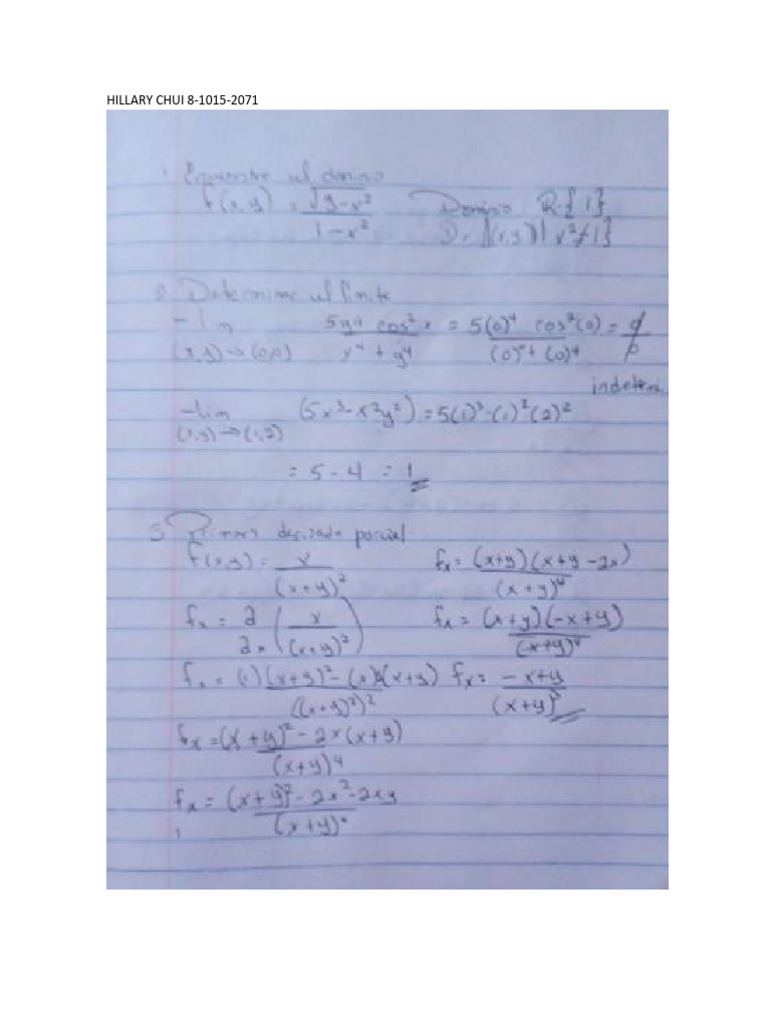 HILLARY CHUI 8-1015-2071
1. Encuentre el dominio
f(x,y) = √(y-x²) / (1-x²)   Dominio R-{1}
D = {(x,y) | x²≠1}
2. Determine el limite
- lim (x,y)→(0,0) 5y⁴ cos²x / (x⁴ + y⁴) = 5(0)⁴ cos²(0) / ((0)⁴ + (0)⁴) = 0/0
indeterm.
- lim (x,y)→(1,2) (5x³-x²y²) = 5(1)³-(1)²(2)²
= 5 - 4 = 1
3. Primera derivada parcial
f(x,y) = x / (x+y)²   fx = (x+y)(x+y-2x) / (x+y)⁴
fx = ∂/∂x (x / (x+y)²)   fx = (x+y)(-x+y) / (x+y)⁴
fx = (1)(x+y)² - (x)2(x+y) / ((x+y)²)²   fx = -x+y / (x+y)³
fx = (x+y)² - 2x(x+y) / (x+y)⁴
fx = (x+y)² - 2x² - 2xy / (x+y)⁴